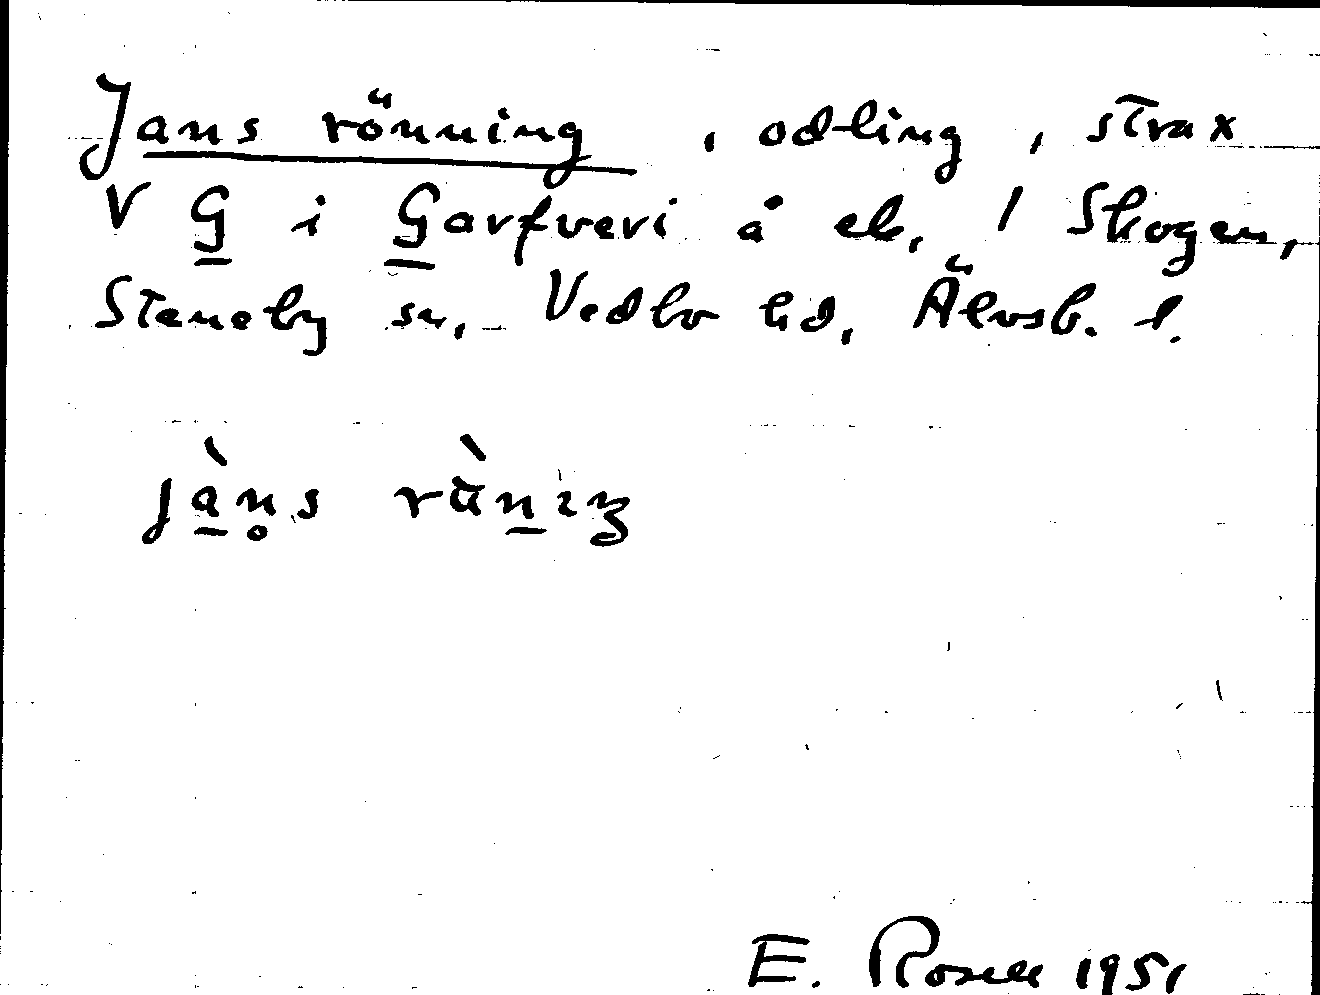 Jans rönning, odling, strax
V G i Garfveri å ek. 1 Skogen,
Steneby sn, Vedbo hd, Älvsb. l.
E. Rosell 1951